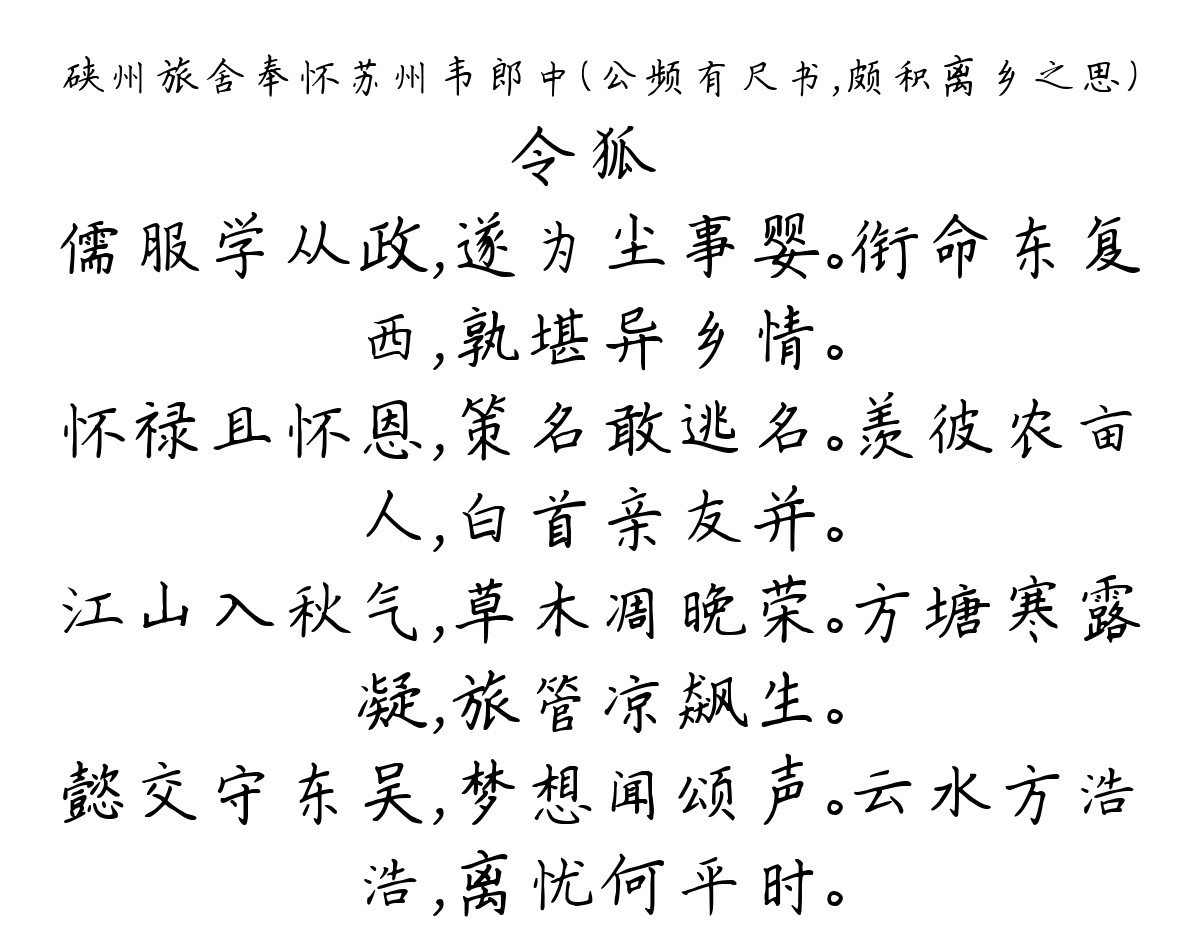 硖州旅舍奉怀苏州韦郎中(公频有尺书,颇积离乡之思)
令狐
儒服学从政,遂为尘事婴。衔命东复
西,孰堪异乡情。
怀禄且怀恩,策名敢逃名。羡彼农亩
人,白首亲友并。
江山入秋气,草木凋晚荣。方塘寒露
凝,旅管凉飙生。
懿交守东吴,梦想闻颂声。云水方浩
浩,离忧何平时。